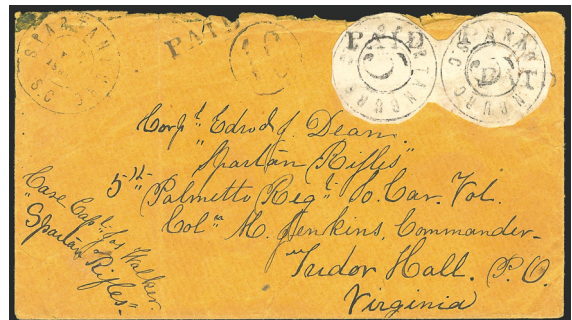 SPARTANBURG S.C.
PAID
10
PAID
SPARTANBURG S.C.
PAID
SPARTANBURG S.C.
Corpl Edrod J. Dean.
"Spartan Rifles"
5th Palmetto Regt So. Car. Vol.
Coln M. Jenkins, Commander-
Tudor Hall. P.O.
Virginia
Care Capt. Jos Walker.
Spartan Rifles-